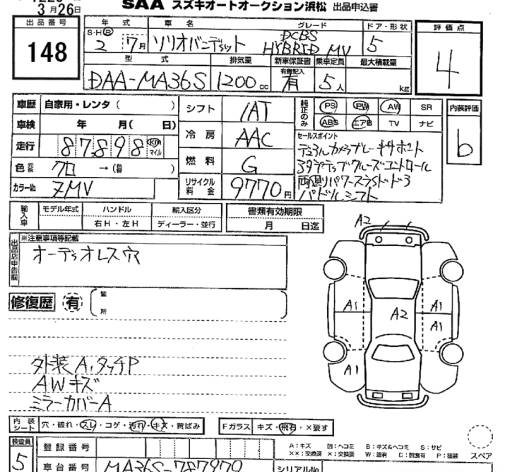 3月26日 SAA スズキオートオークション浜松 出品申込書
出品番号 年式 車名 グレード ドア・形状 評価点
148 S・H・R 2年 7月 ソリオバンディット DCBS HYBRID MV 5 4
型式 排気量 新車保証書 乗車定員 最大積載量
DAA-MA36S 1200cc 有 5人 kg
車歴 自家用・レンタ( ) シフト IAT 純正のみ PS PW AW SR 内装評価
車検 年 月(日) 冷房 AAC ABS エアB TV ナビ b
走行 87898 km マイル 燃料 G セールスポイント
デュアルカメラブレーキサポート
アダプティブクルーズコントロール
色 クロ →( ) リサイクル料金 9770円 両側パワースライドドア
カラーNo ZMV パドルシフト
輸入車 モデル年式 ハンドル 輸入区分 書類有効期限
右H・左H ディーラー・並行 月 日迄
※注意事項等記載
オーディオレス穴
A2
修復歴 有 箇所
A1 A2 A1 A1
A1
外装A,タッチP
AWキズ
ミラーカバーA
内装シート 穴・破れ・スレ・コゲ・汚れ・キズ・黄ばみ Fガラス キズ・飛石・×要す スペア
検査員 5 登録番号
車台番号 MA36S-787970 シリアルNo